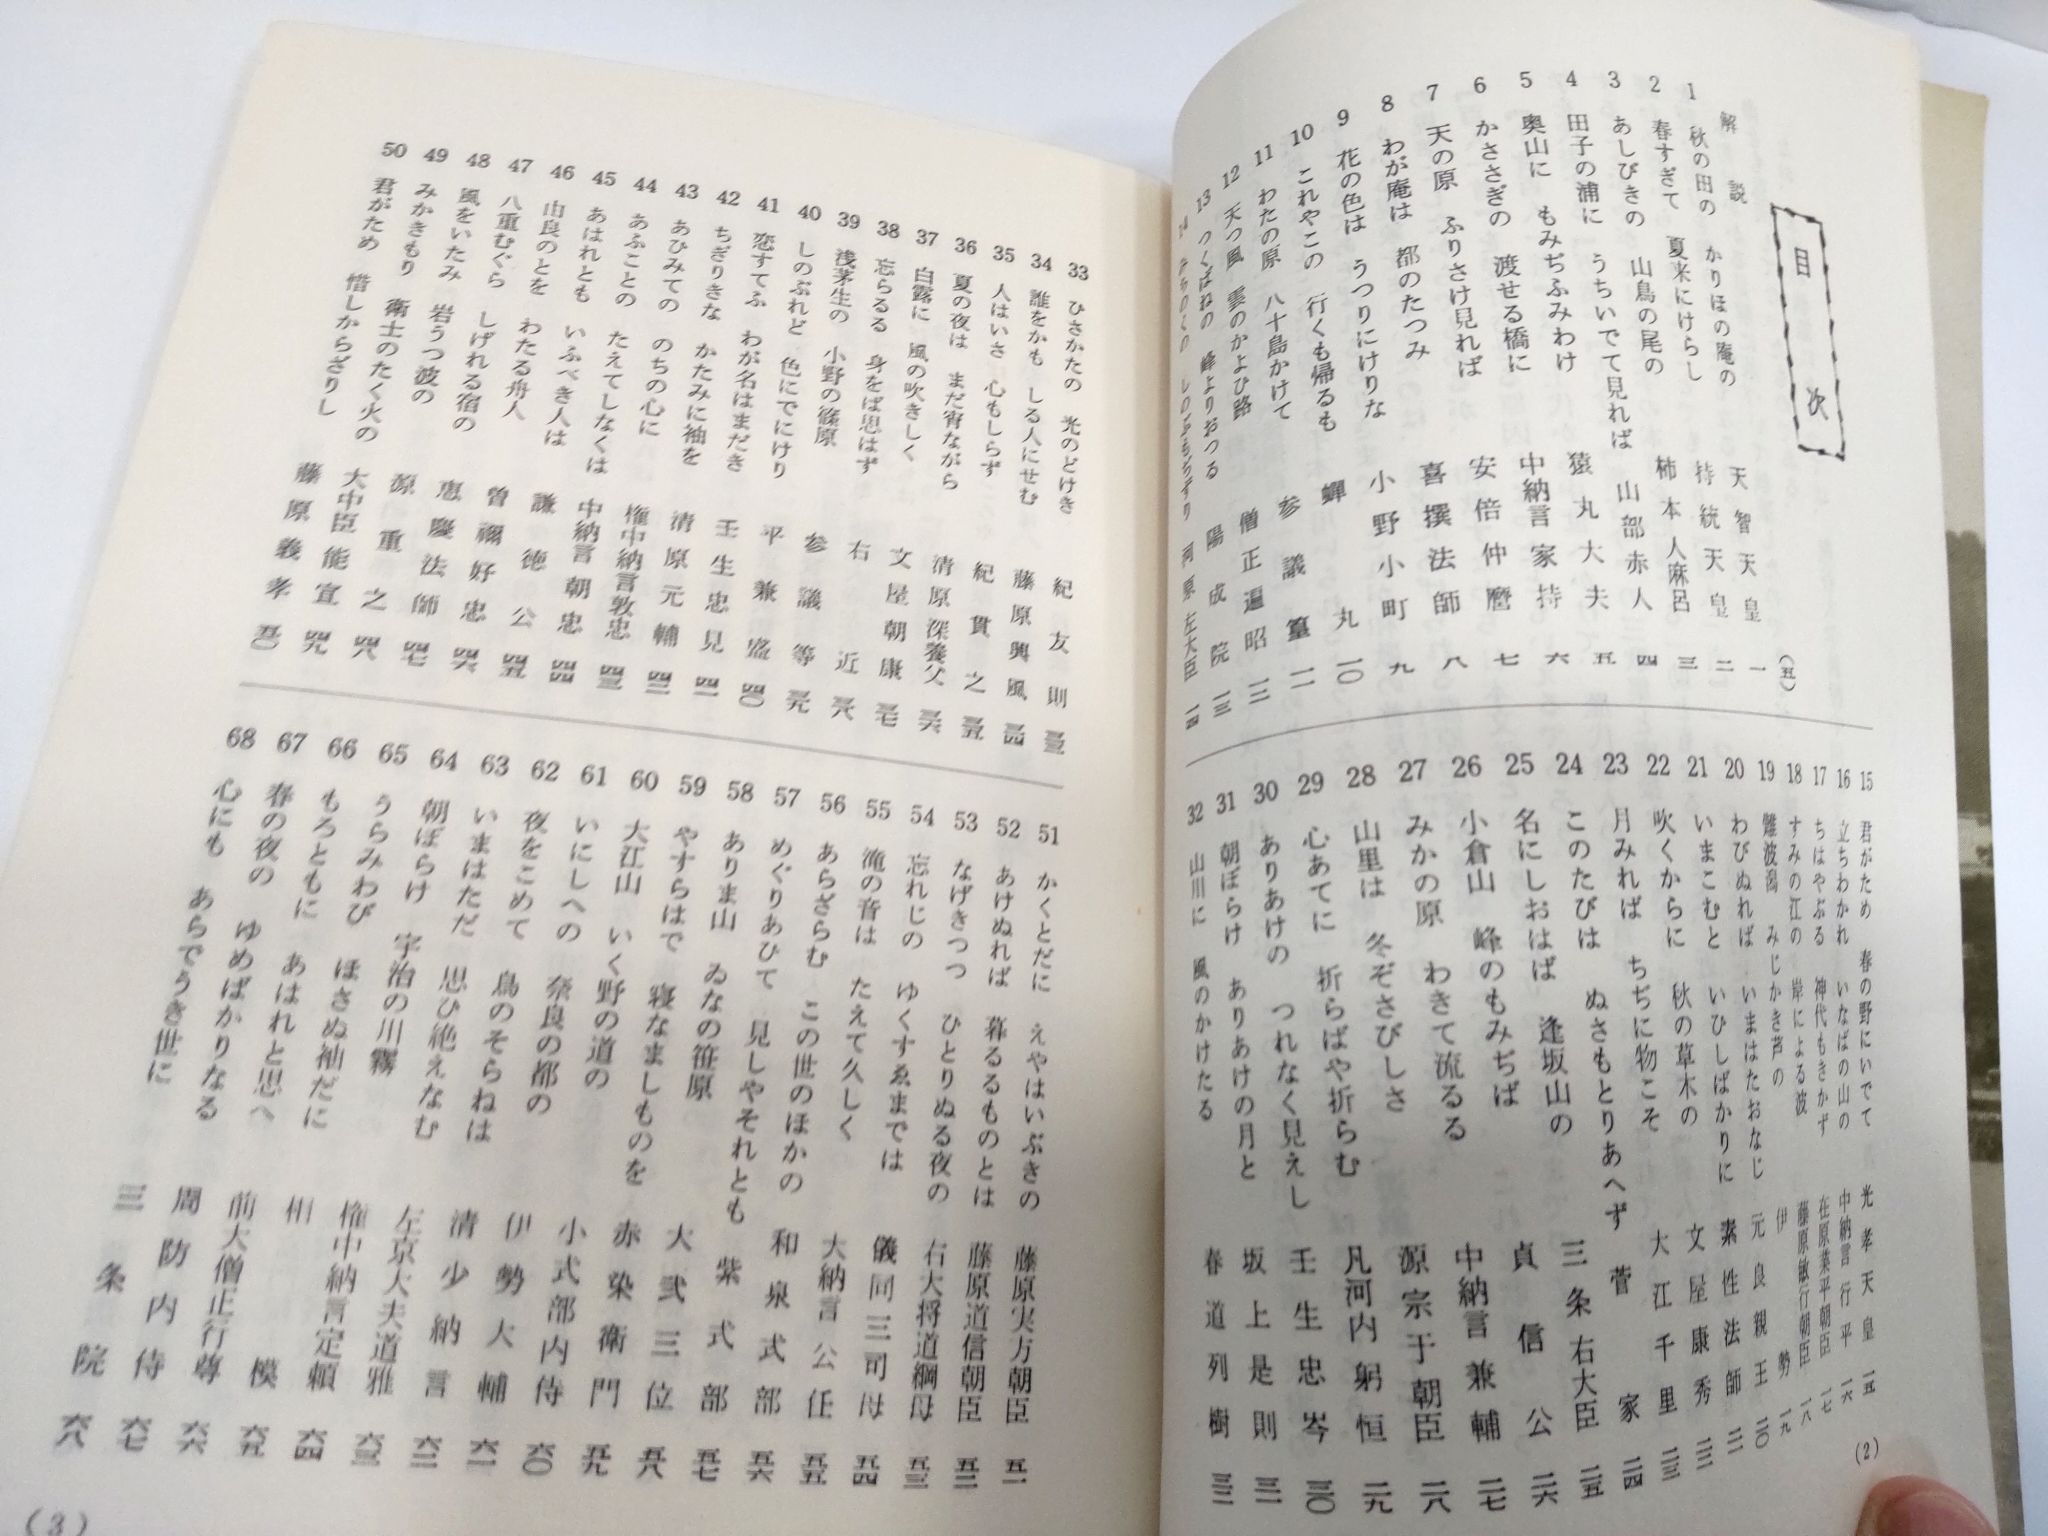 目次
解説 (五)
1 秋の田の かりほの庵の 天智天皇 一
2 春すぎて 夏来にけらし 持統天皇 二
3 あしびきの 山鳥の尾の 柿本人麻呂 三
4 田子の浦に うちいでて見れば 山部赤人 四
5 奥山に もみぢふみわけ 猿丸大夫 五
6 かささぎの 渡せる橋に 中納言家持 六
7 天の原 ふりさけ見れば 安倍仲麿 七
8 わが庵は 都のたつみ 喜撰法師 八
9 花の色は うつりにけりな 小野小町 九
10 これやこの 行くも帰るも 蟬丸 一〇
11 わたの原 八十島かけて 参議篁 一一
12 天つ風 雲のかよひ路 僧正遍昭 一二
13 つくばねの 峰よりおつる 陽成院 一三
14 みちのくの しのぶもぢずり 河原左大臣 一四
15 君がため 春の野にいでて 光孝天皇 一五
16 立ちわかれ いなばの山の 中納言行平 一六
17 ちはやぶる 神代もきかず 在原業平朝臣 一七
18 すみの江の 岸による波 藤原敏行朝臣 一八
19 難波潟 みじかき芦の 伊勢 一九
20 わびぬれば いまはたおなじ 元良親王 二〇
21 いまこむと いひしばかりに 素性法師 二一
22 吹くからに 秋の草木の 文屋康秀 二二
23 月みれば ちぢに物こそ 大江千里 二三
24 このたびは ぬさもとりあへず 菅家 二四
25 名にしおはば 逢坂山の 三条右大臣 二五
26 小倉山 峰のもみぢば 貞信公 二六
27 みかの原 わきて流るる 中納言兼輔 二七
28 山里は 冬ぞさびしさ 源宗于朝臣 二八
29 心あてに 折らばや折らむ 凡河内躬恒 二九
30 ありあけの つれなく見えし 壬生忠岑 三〇
31 朝ぼらけ ありあけの月と 坂上是則 三一
32 山川に 風のかけたる 春道列樹 三二
(2)
33 ひさかたの 光のどけき 紀友則 三三
34 誰をかも しる人にせむ 藤原興風 三四
35 人はいさ 心もしらず 紀貫之 三五
36 夏の夜は まだ宵ながら 清原深養父 三六
37 白露に 風の吹きしく 文屋朝康 三七
38 忘らるる 身をば思はず 右近 三八
39 浅茅生の 小野の篠原 参議等 三九
40 しのぶれど 色にでにけり 平兼盛 四〇
41 恋すてふ わが名はまだき 壬生忠見 四一
42 ちぎりきな かたみに袖を 清原元輔 四二
43 あひみての のちの心に 権中納言敦忠 四三
44 あふことの たえてしなくは 中納言朝忠 四四
45 あはれとも いふべき人は 謙徳公 四五
46 由良のとを わたる舟人 曾禰好忠 四六
47 八重むぐら しげれる宿の 恵慶法師 四七
48 風をいたみ 岩うつ波の 源重之 四八
49 みかきもり 衛士のたく火の 大中臣能宣 四九
50 君がため 惜しからざりし 藤原義孝 五〇
51 かくとだに えやはいぶきの 藤原実方朝臣 五一
52 あけぬれば 暮るるものとは 藤原道信朝臣 五二
53 なげきつつ ひとりぬる夜の 右大将道綱母 五三
54 忘れじの ゆくすゑまでは 儀同三司母 五四
55 滝の音は たえて久しく 大納言公任 五五
56 あらざらむ この世のほかの 和泉式部 五六
57 めぐりあひて 見しやそれとも 紫式部 五七
58 ありま山 ゐなの笹原 大弐三位 五八
59 やすらはで 寝なましものを 赤染衛門 五九
60 大江山 いく野の道の 小式部内侍 六〇
61 いにしへの 奈良の都の 伊勢大輔 六一
62 夜をこめて 鳥のそらねは 清少納言 六二
63 いまはただ 思ひ絶えなむ 左京大夫道雅 六三
64 朝ぼらけ 宇治の川霧 権中納言定頼 六四
65 うらみわび ほさぬ袖だに 相模 六五
66 もろともに あはれと思へ 前大僧正行尊 六六
67 春の夜の ゆめばかりなる 周防内侍 六七
68 心にも あらでうき世に 三条院 六八
(3)